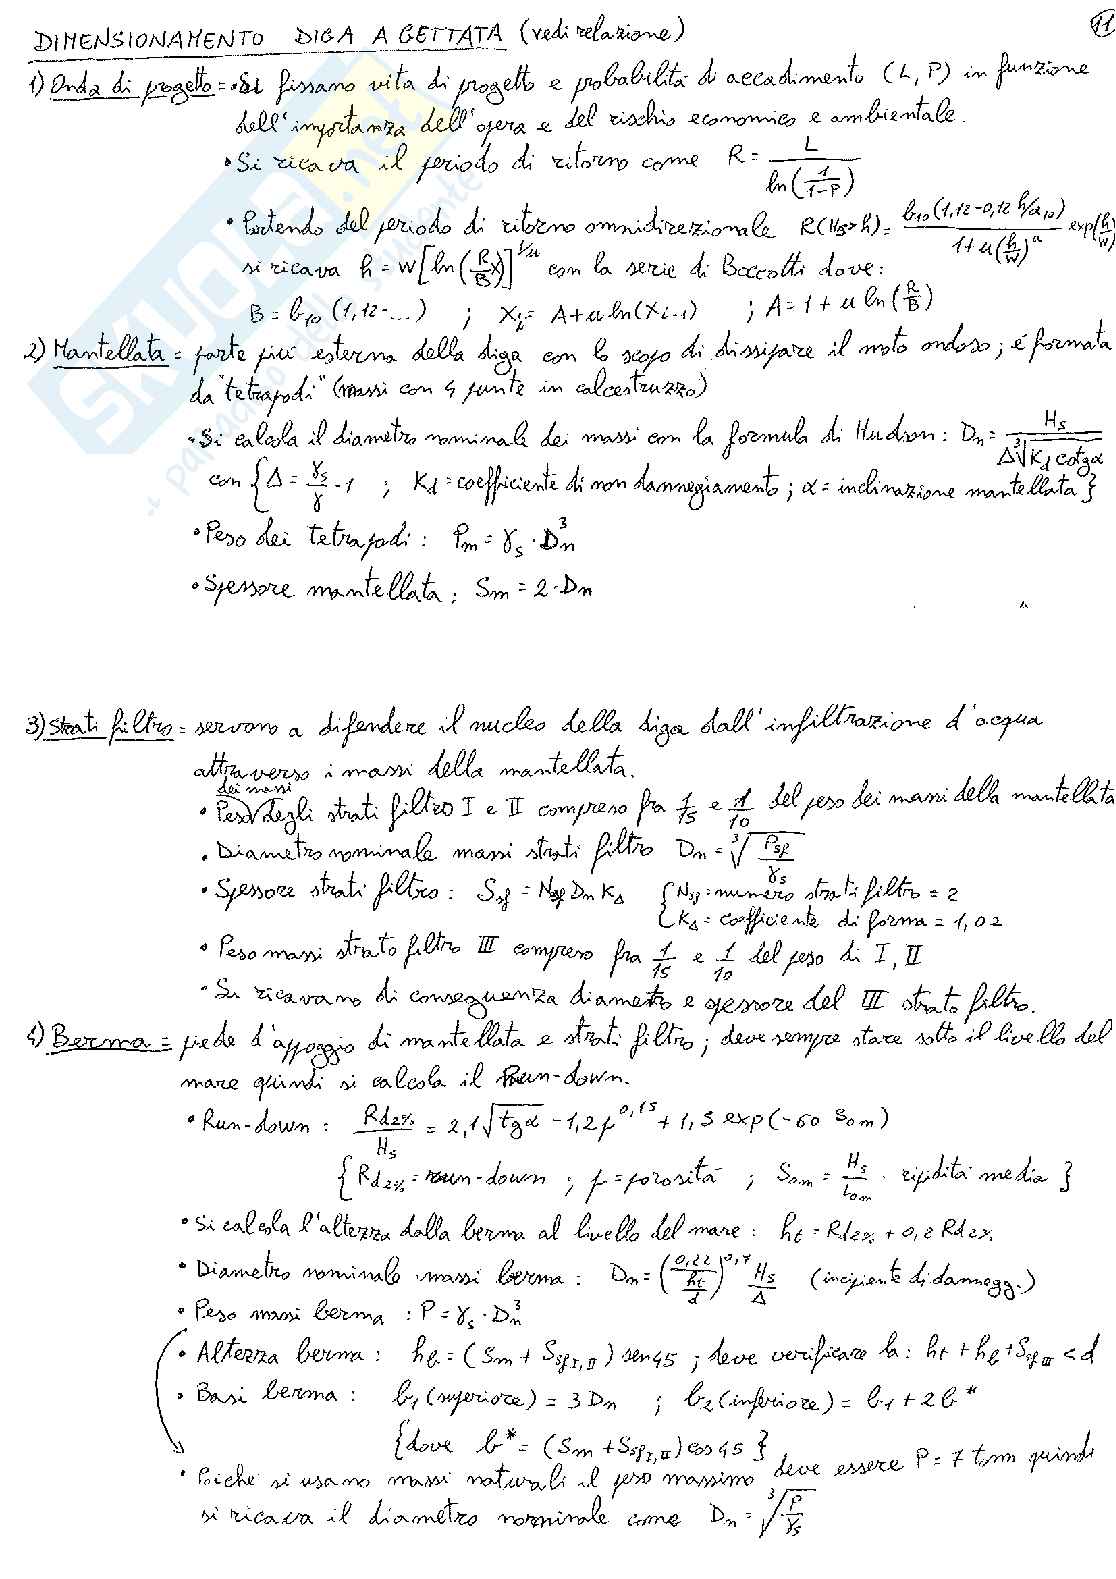 DIMENSIONAMENTO DIGA A GETTATA (vedi relazione)
11
1) Onda di progetto = • Si fissano vita di progetto e probabilità di accadimento (L, P) in funzione
dell'importanza dell'opera e del rischio economico e ambientale.
• Si ricava il periodo di ritorno come R = L / ln(1/(1-P))
• Partendo del periodo di ritorno omnidirezionale R(Hs>h) = b10 (1,12-0,12 h/a10) / (1+u(h/w)^u) exp(h/w)
si ricava h = w[ln(R/B X)]^1/u con la serie di Boccotti dove:
B = b10 (1,12-...) ; Xi = A+u ln(Xi-1) ; A = 1+u ln(R/B)
2) Mantellata = parte più esterna della diga con lo scopo di dissipare il moto ondoso; é formata
da "tetrapodi" (massi con 4 punte in calcestruzzo)
• Si calcola il diametro nominale dei massi con la formula di Hudson: Dn = Hs / (Δ ∛(Kd cotgα))
con { Δ = γs/γ - 1 ; Kd = coefficiente di non dannegiamento; α = inclinazione mantellata }
• Peso dei tetrapodi: Pm = γs · Dn³
• Spessore mantellata: Sm = 2·Dn
3) Strati filtro = servono a difendere il nucleo della diga dall'infiltrazione d'acqua
attraverso i massi della mantellata.
dei massi
• Peso degli strati filtro I e II compreso fra 1/15 e 1/10 del peso dei massi della mantellata
• Diametro nominale massi strati filtro Dn = ∛(Psf/γs)
• Spessore strati filtro: Ssf = Nsf Dn KΔ { Nsf = numero strati filtro = 2
{ KΔ = coefficiente di forma = 1,02
• Peso massi strato filtro III compreso fra 1/15 e 1/10 del peso di I, II
• Si ricavano di conseguenza diametro e spessore del III strato filtro.
4) Berma = piede d'appoggio di mantellata e strati filtro; deve sempre stare sotto il livello del
mare quindi si calcola il Run-down.
• Run-down: Rd2%/Hs = 2,1√tgα - 1,2p^0,15 + 1,5 exp(-60 Som)
{ Rd2% = run-down ; p = porosità ; Som = Hs/Lom · ripidità media }
• Si calcola l'altezza dalla berma al livello del mare: ht = Rd2% + 0,2 Rd2%
• Diametro nominale massi berma: Dn = (0,22/(ht/d))^0,7 Hs/Δ (incipiente di dannegg.)
• Peso massi berma: P = γs · Dn³
• Altezza berma: hb = (Sm + SsfI,II) sen45 ; deve verificare la: ht + hb + SsfIII < d
• Basi berma: b1 (superiore) = 3Dn ; b2 (inferiore) = b1 + 2b*
{dove b* = (Sm + SsfI,II) cos45 }
• Poiche si usano massi naturali il peso massimo deve essere P = 7 tonn quindi
si ricava il diametro nominale come Dn = ∛(P/γs)